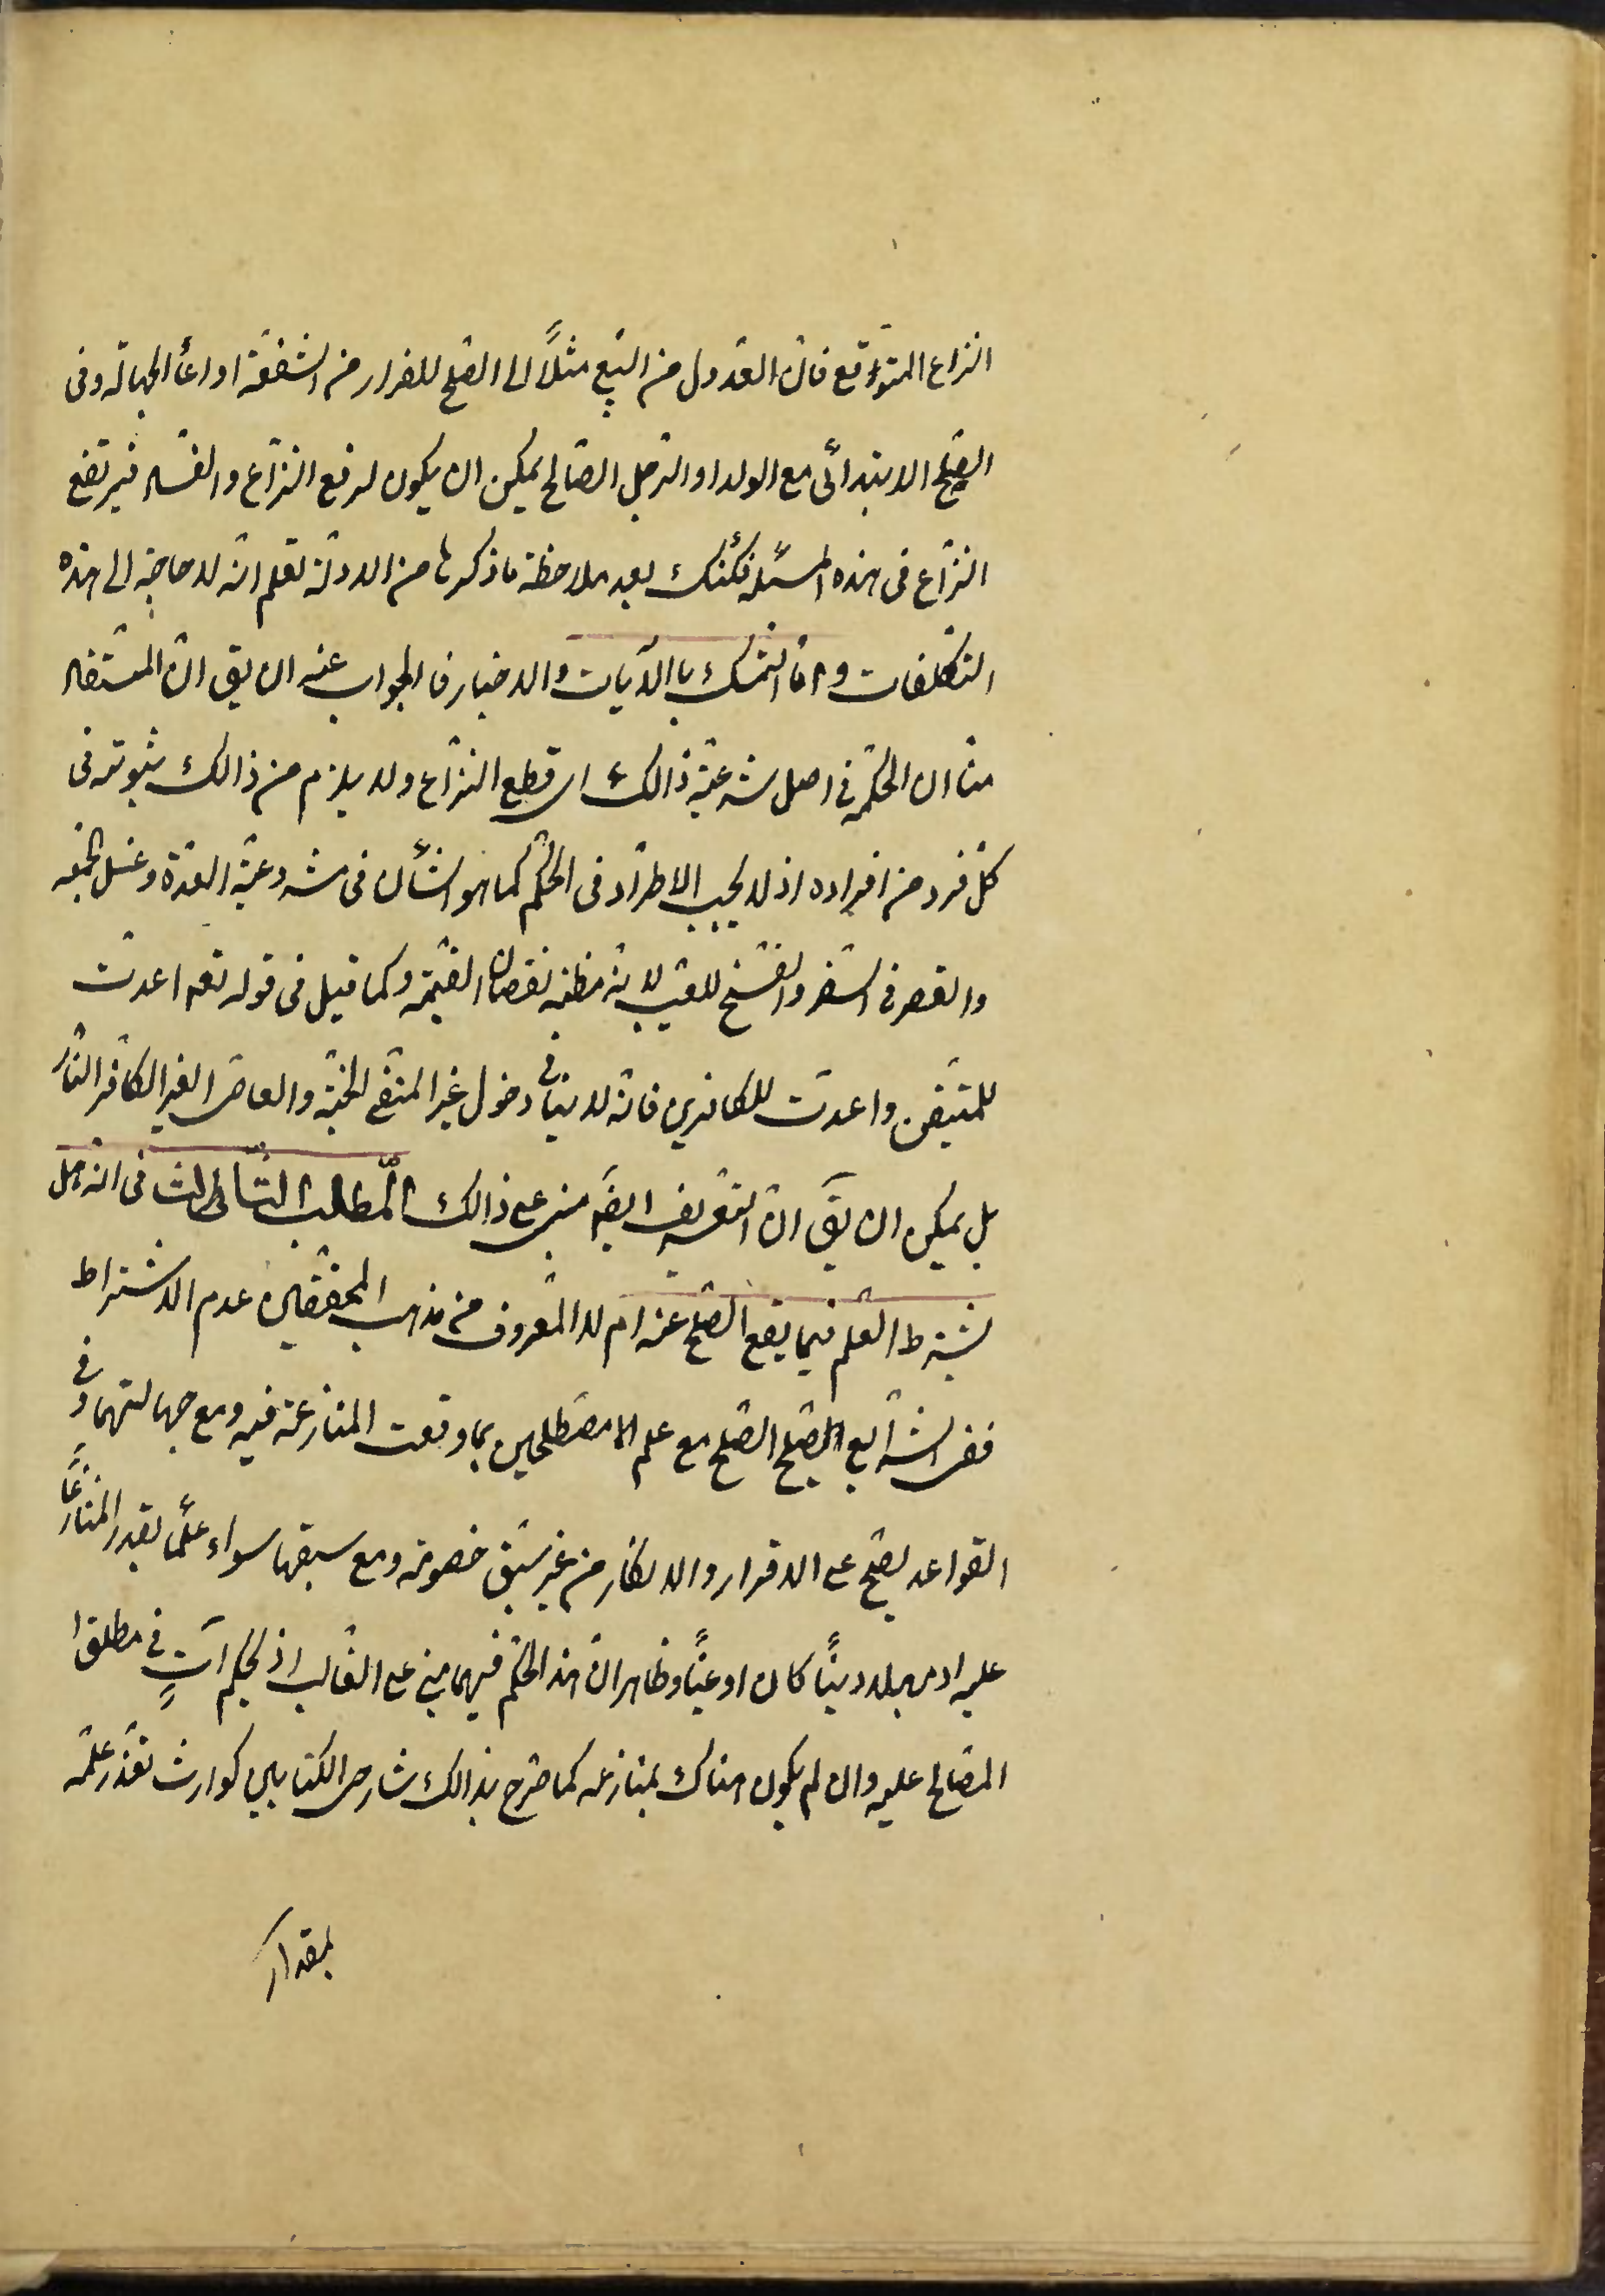 النزاع المتوقع فان العدول من البيع مثلاً الى الصلح للفرار من الشفعة او ادعآء الجهالة وفى
الصلح الابتدائى مع الولد او الرجل الصالح يمكن ان يكون لرفع النزاع والفساد فيرتفع
النزاع فى هذه المسئلة لكنك بعد ملاحظة ما ذكرنا من الادلة تعلم انه لا حاجة الى هذه
التكلفات واما التمسك باالآيات والاخبار فالجواب عنه ان يق ان المستفاد
منها ان الحكمة فى اصل شرعية ذالك اى قطع النزاع ولا يلزم من ذالك ثبوته فى
كل فرد من افراده اذ لا يجب الاطراد فى الحكم كما هو الشأن فى مشروعية العدة وغسل الجمعه
والقصر فى السفر والفسخ للعيب لانه مظنه نقصان القيمة وكما قيل فى قوله تعه اعدت
للمتيقن واعدت للكافرين فانه لا ينافى دخول غير المتقى الجنة والعاصى الغير الكافر النار
بل يمكن ان يق ان التعريف ايضه مبنى على ذالك المطلب الثالث فى انه هل
يشترط العلم فيما يقع الصلح عنه ام لا المعروف من مذهب المحققين عدم الاشتراط
ففى الشرآيع الصلح مع علم المصطلحين بما وقعت المنازعة فيه ومع جهالتهما وفى
القواعد يصح على الاقرار والانكار من غير سبق خصومة ومع سبقها سواء علما بقدر المتنازعا
عليه ام جهلا ديناً كان او عيناً وظاهر ان هذا الحكم فيهما مبنى على الغالب اذ الحكم آتٍ فى مطلق
المصالح عليه وان لم يكون هناك بمنازعه كما صرح بذالك شارحى الكتابين كوارث تعذر علمه
بمقدار